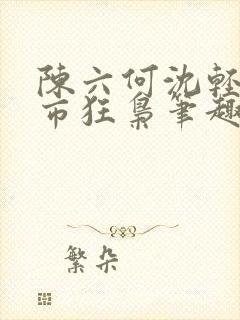 陳六何沈輕
市狂梟筆趣
繁朵